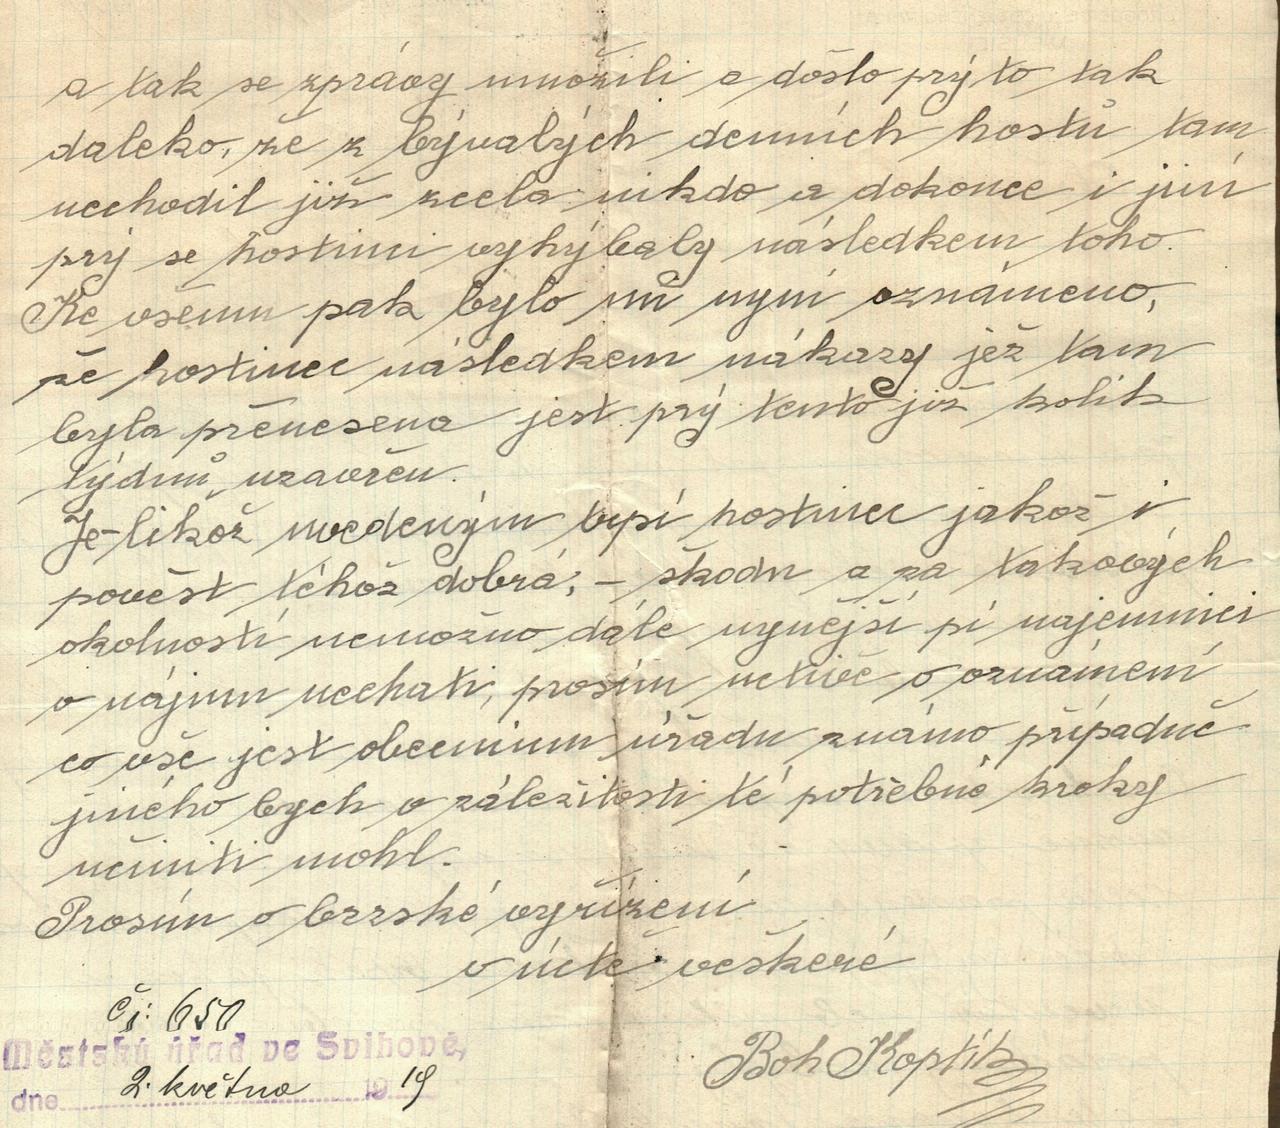 a tak se zprávy množili a došlo prý to tak
daleko, že z bývalých denních hostů tam
nechodil již zcela nikdo a dokonce i jiní
prý se hostinci vyhýbaly následkem toho.
Ke všemu pak bylo mi nyní oznámeno,
že hostinec následkem nákazy jež tam
byla přenesena jest prý tento již kolik
týdnů uzavřen.
Je-likož uvedeným trpí hostinec jakož i
pověst téhož dobrá, – škodu a za takových
okolností nemožno dále nynější pí nájemnici
v nájmu nechati, prosím uctivě o oznámení
co vše jest obecnímu úřadu známo případně
jiného bych v záležitosti té potřebné kroky
učiniti mohl.
Prosím o brzské vyřízení
v úctě veškeré
čj: 650
Městský úřad ve Švihově,
dne 2. května 19 19
Boh Koptík